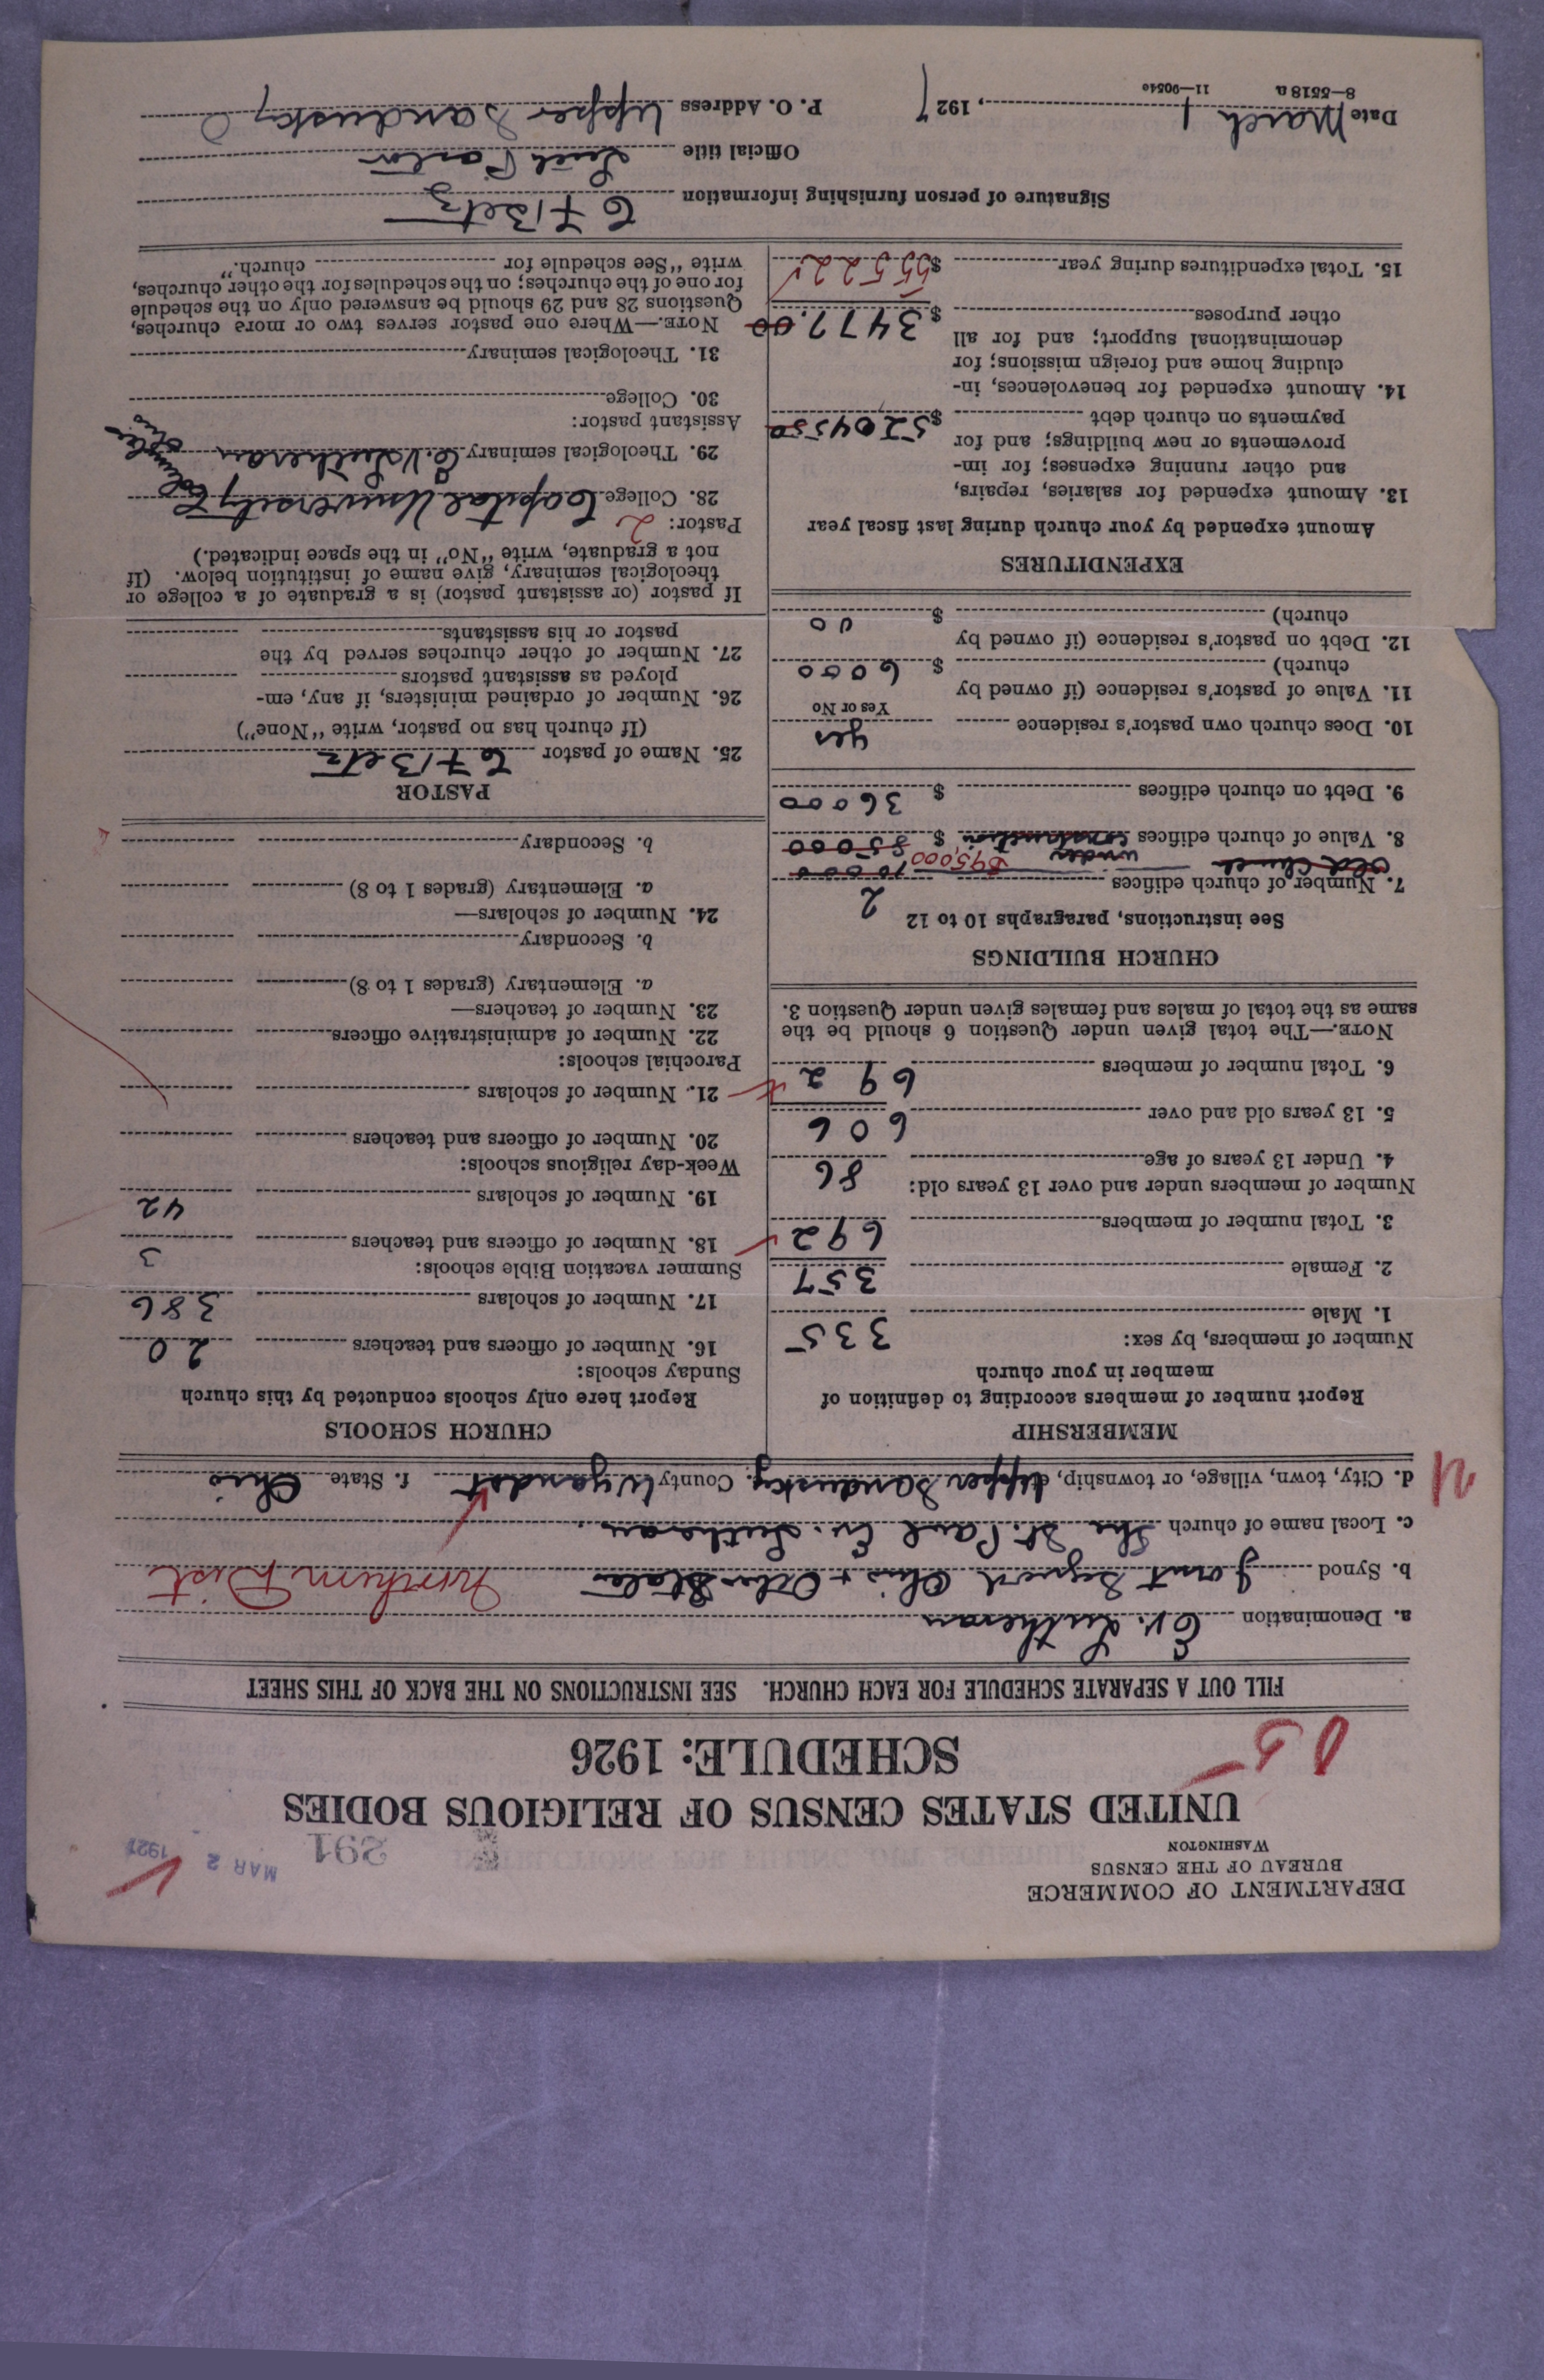 DEPARTMENT OF COMMERCE
BUREAU OF THE CENSUS
WASHINGTON
291
MAR 2 1927
UNITED STATES CENSUS OF RELIGIOUS BODIES
SCHEDULE: 1926
FILL OUT A SEPARATE SCHEDULE FOR EACH CHURCH. SEE INSTRUCTIONS ON THE BACK OF THIS SHEET
a. Denomination Ev. Lutheran
b. Synod Joint Synod Ohio + Other States Northern Dist
c. Local name of church The St. Paul Ev. Lutheran
d. City, town, village, or township, Upper Sandusky County Wyandot f. State Ohio
MEMBERSHIP
Report number of members according to definition of
member in your church
Number of members, by sex:
1. Male 335
2. Female 357
3. Total number of members 692
Number of members under and over 13 years old:
4. Under 13 years of age 86
5. 13 years old and over 606
6. Total number of members 692
NOTE.—The total given under Question 6 should be the
same as the total of males and females given under Question 3.
CHURCH BUILDINGS
See instructions, paragraphs 10 to 12
7. Number of church edifices 2
Old Church under $95,000 10000
8. Value of church edifices construction $ 85000
9. Debt on church edifices $ 36000
10. Does church own pastor's residence yes
Yes or No
11. Value of pastor's residence (if owned by
church) $ 6000
12. Debt on pastor's residence (if owned by
church) $ 00
EXPENDITURES
Amount expended by your church during last fiscal year
13. Amount expended for salaries, repairs,
and other running expenses; for im-
provements or new buildings; and for
payments on church debt $ 52045.50
14. Amount expended for benevolences, in-
cluding home and foreign missions; for
denominational support; and for all
other purposes $ 3477.00
15. Total expenditures during year $ 55522
CHURCH SCHOOLS
Report here only schools conducted by this church
Sunday schools:
16. Number of officers and teachers 20
17. Number of scholars 386
Summer vacation Bible schools:
18. Number of officers and teachers 3
19. Number of scholars 42
Week-day religious schools:
20. Number of officers and teachers
21. Number of scholars
Parochial schools:
22. Number of administrative officers
23. Number of teachers—
a. Elementary (grades 1 to 8)
b. Secondary
24. Number of scholars—
a. Elementary (grades 1 to 8)
b. Secondary
PASTOR
25. Name of pastor C F Betz
(If church has no pastor, write "None")
26. Number of ordained ministers, if any, em-
ployed as assistant pastors
27. Number of other churches served by the
pastor or his assistants
If pastor (or assistant pastor) is a graduate of a college or
theological seminary, give name of institution below. (If
not a graduate, write "No" in the space indicated.)
Pastor: 2
28. College Capital University
29. Theological seminary Ev. Lutheran
Assistant pastor:
30. College
31. Theological seminary
NOTE.—Where one pastor serves two or more churches,
Questions 28 and 29 should be answered only on the schedule
for one of the churches; on the schedules for the other churches,
write "See schedule for church."
Signature of person furnishing information C F Betz
Official title Pastor
Date March 1, 1927 P. O. Address Upper Sandusky O
8—5518 a 11—9054c